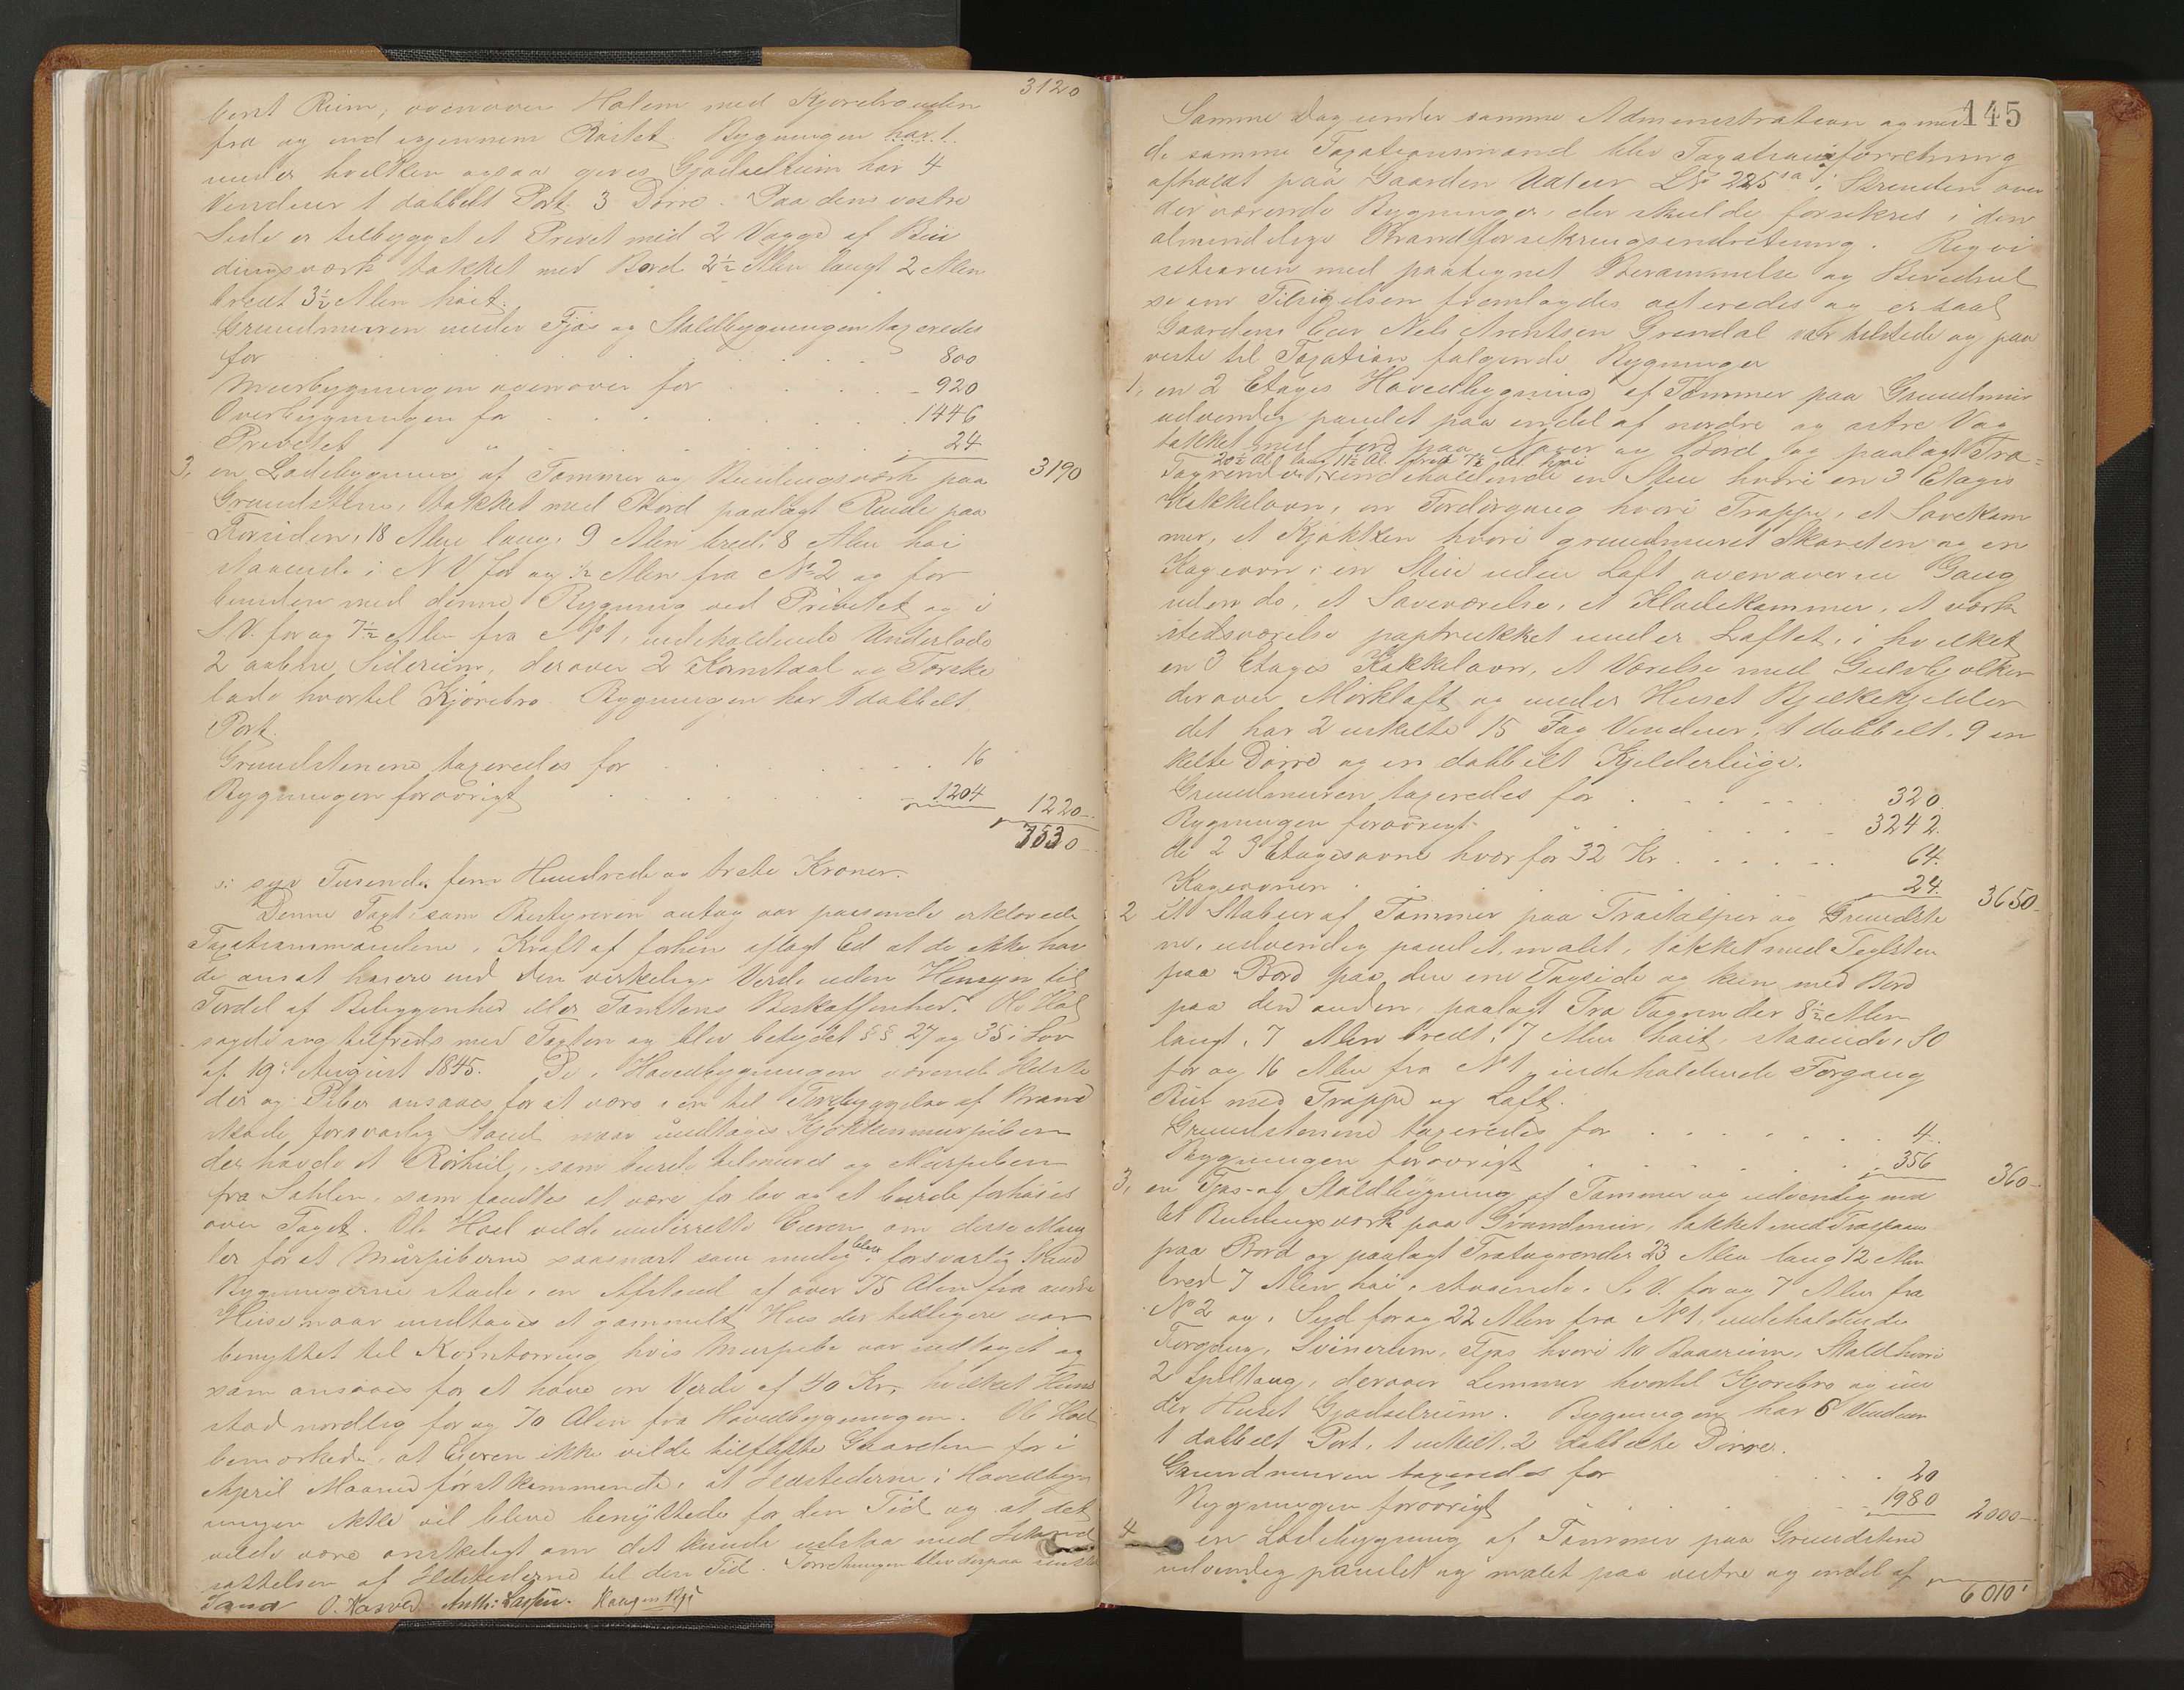 3120
bent Rum, ovenover Halem med Kjørebro uden
fra og ind igjennem Røstet. Bygningen har 1
under hvilken ogsaa gives Gjødselrum har 4
Vinduer 1 dobbelt Port 3 Dørre. Paa dens vestre
Side er tilbygget et Privet med 2 Vægge af Bin
dingsværk takket med Bord 2½ Alen langt 2 Alen
bredt 3½ Alen høit.
Grundmuren under Fjøs og Staldbygningen taxeredes
for 800
Murbygningen ovenover for 920
Overbygningen for 1446
Privetet " 24
3190
3, en Ladebygning af Tømmer og Bindingsværk paa
Grundstene, takket med Bord paalagt Rende paa
Forsiden, 18 Alen lang, 9 Alen bred, 8 Alen høi
staaende i N V for og ½ Alen fra No 2 og for
bunden med denne Bygning ved Privetet og i
S.V. for og 7½ Alen fra No 1, indeholdende Underlade
2 aabne Siderum, derover 2 Kornstaal og Tørske
lade hvortil Kjørebro. Bygningen har 1 dobbelt
Port.
Grundstenene taxeredes for 16
Bygningen forøvrigt 1204
1220
7530
: syv Tusende fem Hundrede og trete Kroner.
Denne Taxt, som Bestyreren antog var passende erklærede
Taxationsmændene, i Kraft af forhen aflagt Ed at de ikke hav
de ansat høiere end den virkelige Verdi uden Hensyn til
Fordel af Beliggenhed eller Tomtens Beskaffenhed. Ole Hoel
sagde sig tilfreds med Taxten og blev betydet §§ 27 og 35 i Lov
af 19: August 1845. De i Hovedbygningen værende Ildste
der og Piber ansaaes for at være i en til Forebyggelse af Brand
skade forsvarlig Stand naar undtages Kjøkkenmurpiben
der havde et Rørhul, som burde tilmures og Murpiben
fra Sahlen, som fandtes at være for lav og at burde forhøies
over Taget. Ole Hoel vilde underrette Eieren om disse Mang
ler for at Murpiberne saasnart som mulig blev i forsvarlig Stand
Bygningerne stode i en Afstand af over 75 Alen fra andre
Huse naar undtages et gammelt Hus der tidligere var
benyttet til Korntørring hvis Murpibe var nedtaget og
som ansaaes for at have en Verdi af 40 Kr, hvilket Huus
stod nordlig for og 70 Alen fra Hovedbygningen. Ole Hoel
bemærkede, at Eieren ikke vilde tilflytte Gaarden før i
April Maaned førstkommende, at Ildstederne i Hovedbyg
ningen ikke vil blive benyttede før den Tid og at det
vilde være ønskeligt om det kunde udstaa med Istand
sættelsen af Ildstederne til den Tid. Forretningen blev derpaa sluttet
O. Hasved Anth: Larsen. Haagen
145
Samme Dag under samme Administration og med
de samme Taxationsmænd blev Taxationsforretning
afholdt paa Gaarden Udleir LNo 225 a i Strinden over
derværende Bygninger, der skulde forsikres i den
almindelige Brandforsikringsindretning. Reqvi
sitionen med paategnet Berammelse og Beviidnel
se om Tilsigelsen fremlagdes acteredes og
Gaardens Eier Nels Arentsen Grendal var tilstede og paa
viste til Taxation følgende Bygninger
1, en 2 Etages Hovedbygning af Tømmer paa Grundmur
udvendig panelet paa endel af nordre og østre Væg
takket med Jord paa Næver og Bord og paalagt Træ=
20½ Al. lang 11½ Al. bred 7½ Al. høi
Tagrender, indeholdende en Stue hvori en 3 Etages
Kakkelovn, en Fordørgang hvori Trappe, et Sovekam
mer, et Kjøkken hvori grundmuret Skorsten og en
Kageovn, en Stue uden Loft ovenover en Gang
uden do, et Soveværelse, et Klædekammer, et værk
stedsværelse paptrukket under Loftet, i hvilket
en 3 Etages Kakkelovn, et Værelse med Gulvbjelker
derover Mørkloft og under Huset Bjelkekjelder
det har 2 enkelte 15 Fag Vinduer, 1 dobbelt, 9 en
kelte Dørre og en dobbelt Kjelderluge.
Grundmuren taxeredes for 320
Bygningen forøvrigt 3242
de 2 3 Etagesovne hvor for 32 Kr 64
Kageovnen 24
3650
2 et Stabur af Tømmer paa Træstolper og Grundste
ne, udvendig panelet, malet, takket med Teglsten
paa Bord paa den ene Tagside og kun med Bord
paa den anden, paalagt Træ Tagrender 8½ Alen
langt, 7 Alen bredt, 7 Alen høit, staaende i SO
for og 16 Alen fra No 1, indeholdende Forgang
Bur med Trappe og Loft.
Grundstenene taxeredes for 4
Bygningen forøvrigt 356
360
3, en Fjøs- og Staldbygning af Tømmer og udvendig me
let Bindingsværk paa Grundmur, takket med Træspaan
paa Bord og paalagt Trætagrender 23 Alen lang 12 Alen
bred 7 Alen høi, staaende i S.V. for og 7 Alen fra
No 2 og i Syd for og 22 Alen fra No 1, indeholdende
Forgang, Svinerum, Fjøs hvori 10 Baasrum, Stald hvori
2 Spiltaug, derover Lemmer hvortil Kjørebro og un
der Huset Gjødselrum. Bygningen har 6 Vinduer
1 dobbelt Port, 1 enkelt, 2 dobbelte Dørre.
Grundmuren taxeredes for 20
Bygningen forøvrigt 1980
2000
4 en Ladebygning af Tømmer paa Grundstene
udvendig panelet og malet paa vestre og endel af
6010